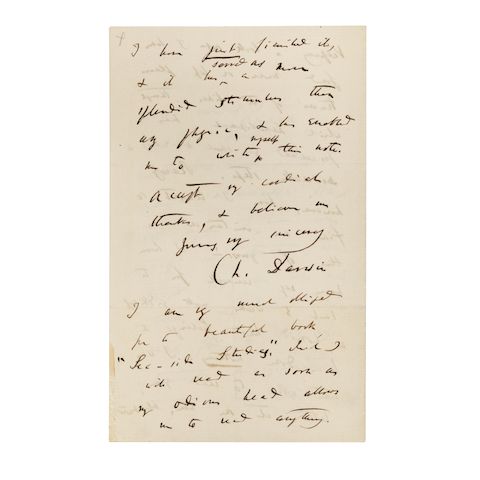 I have just finished it,
served as more
& it has a
splendid stimulus than
any physic, & has enabled
myself
me to write this note.
Accept my cordial
thanks, & believe me
Yours very sincerely
Ch. Darwin
I am very much obliged
for the beautiful book,
"Sea-side Studies," which I
will read as soon as
my odious head allows
me to read anything.